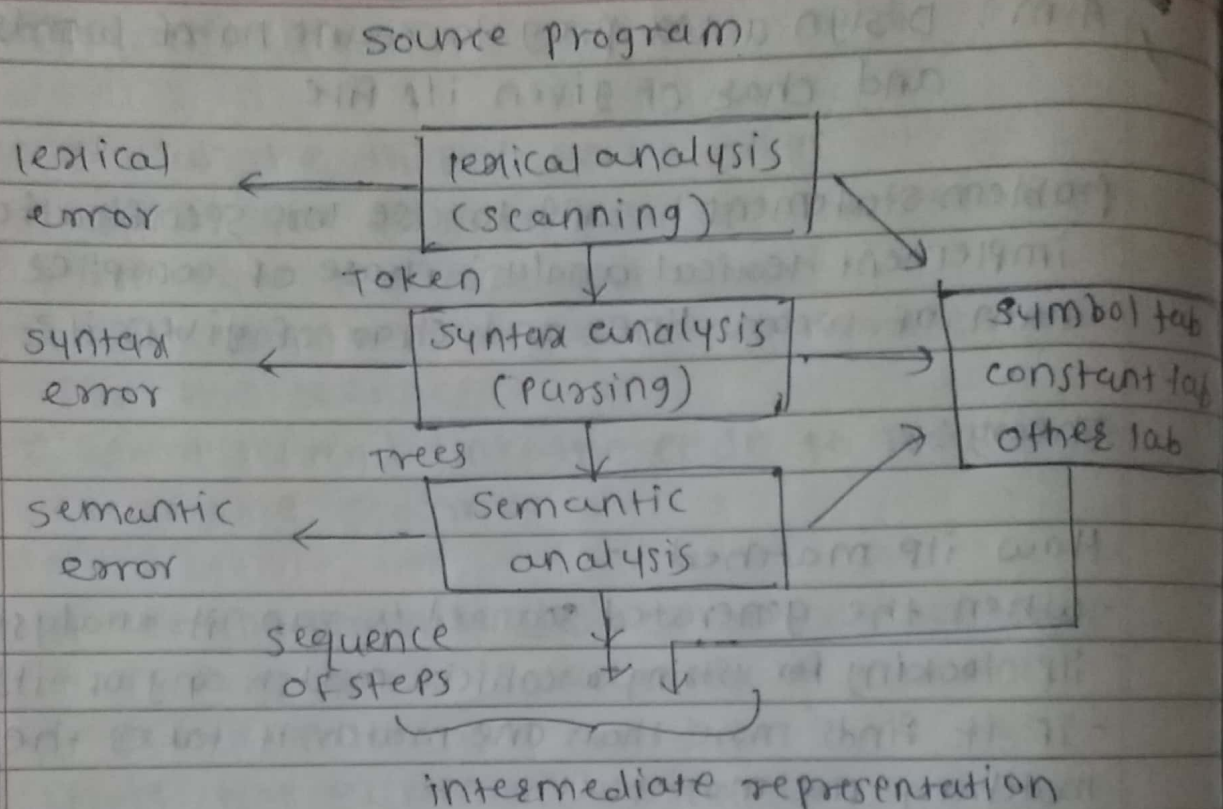 source program
lexical
error
lexical analysis
(scanning)
Token
syntax
error
syntax analysis
(parsing)
symbol tab
constant tab
other lab
Trees
semantic
error
semantic
analysis
sequence
of steps
intermediate representation